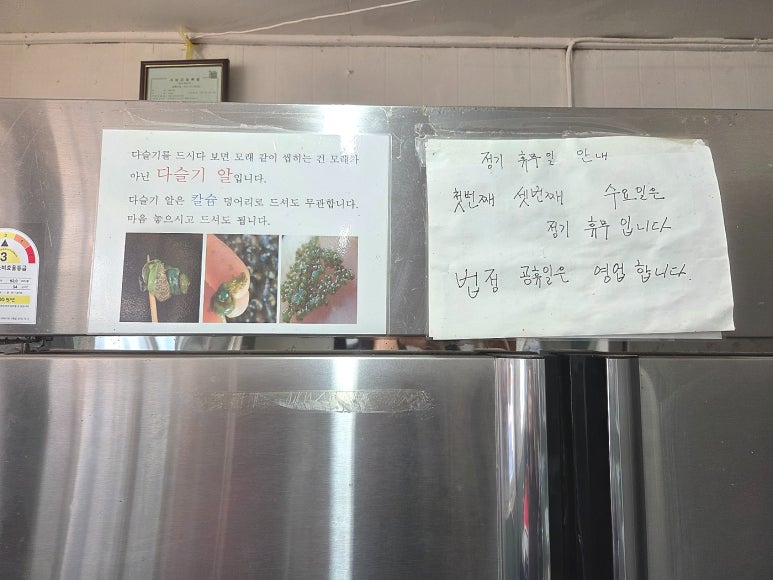 다슬기를 드시다 보면 모래 같이 씹히는 건 모래가
아닌 다슬기 알입니다.
다슬기 알은 칼슘 덩어리로 드셔도 무관합니다.
마음 놓으시고 드셔도 됩니다.
정기 휴무일 안내
첫번째 셋번째 수요일은
정기 휴무 입니다
법정 공휴일은 영업 합니다.
3